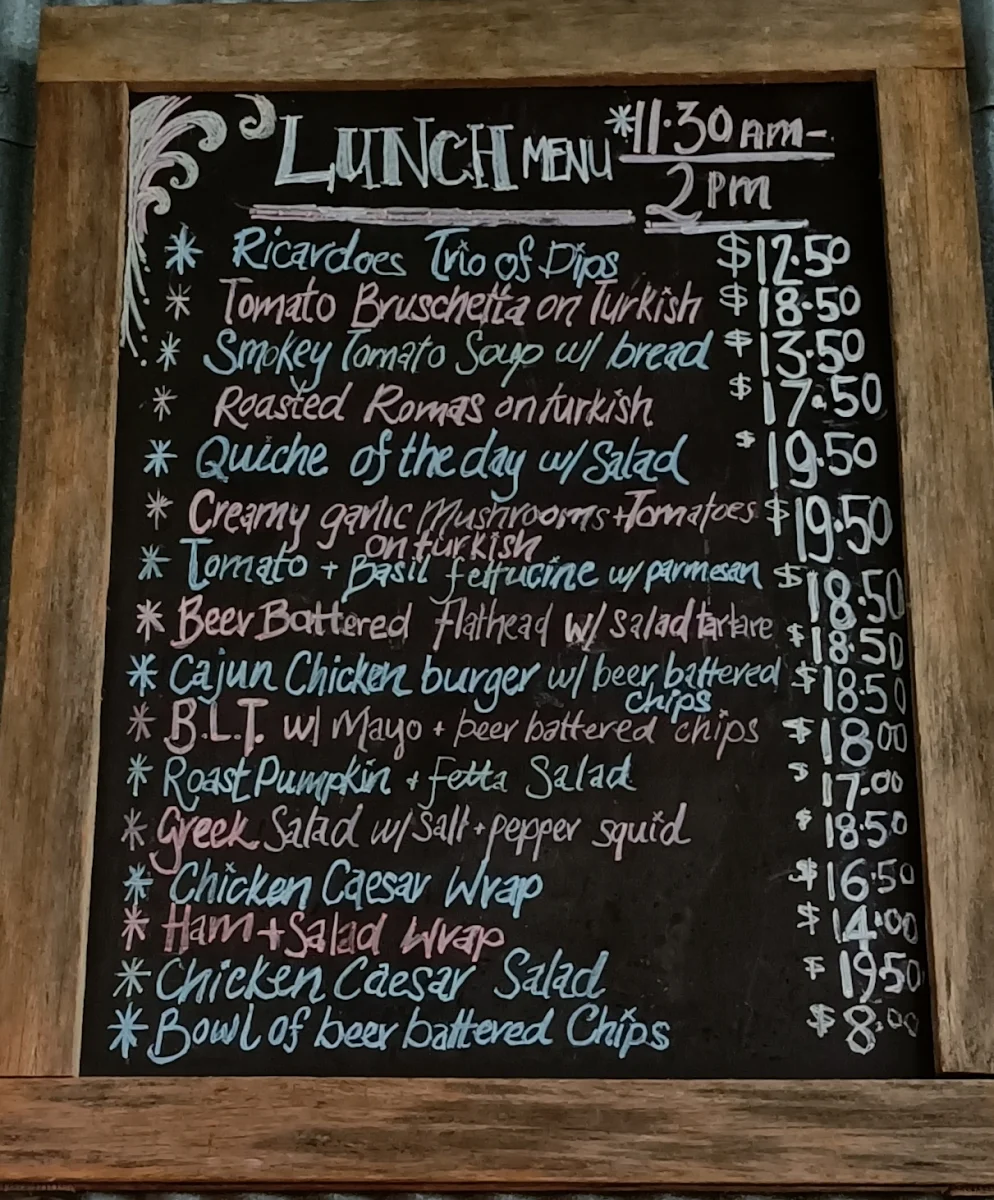 LUNCH MENU *11.30 am-
2 pm
* Ricardoes Trio of Dips $12.50
* Tomato Bruschetta on Turkish $18.50
* Smokey Tomato Soup w/ bread $13.50
* Roasted Romas on turkish $17.50
* Quiche of the day w/ Salad $19.50
* Creamy garlic Mushrooms + Tomatoes $19.50
on turkish
* Tomato + Basil fettucine w/ parmesan $18.50
* Beer Battered flathead w/ salad tartare $18.50
* Cajun Chicken burger w/ beer battered $18.50
chips
* B.L.T. w/ Mayo + beer battered chips $18.00
* Roast Pumpkin + fetta Salad $17.00
* Greek Salad w/ Salt + pepper squid $18.50
* Chicken Caesar Wrap $16.50
* Ham + Salad Wrap $14.00
* Chicken Caesar Salad $19.50
* Bowl of beer battered Chips $8.00